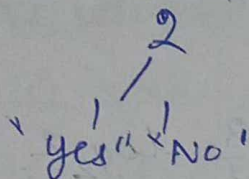 2
"yes" "No"